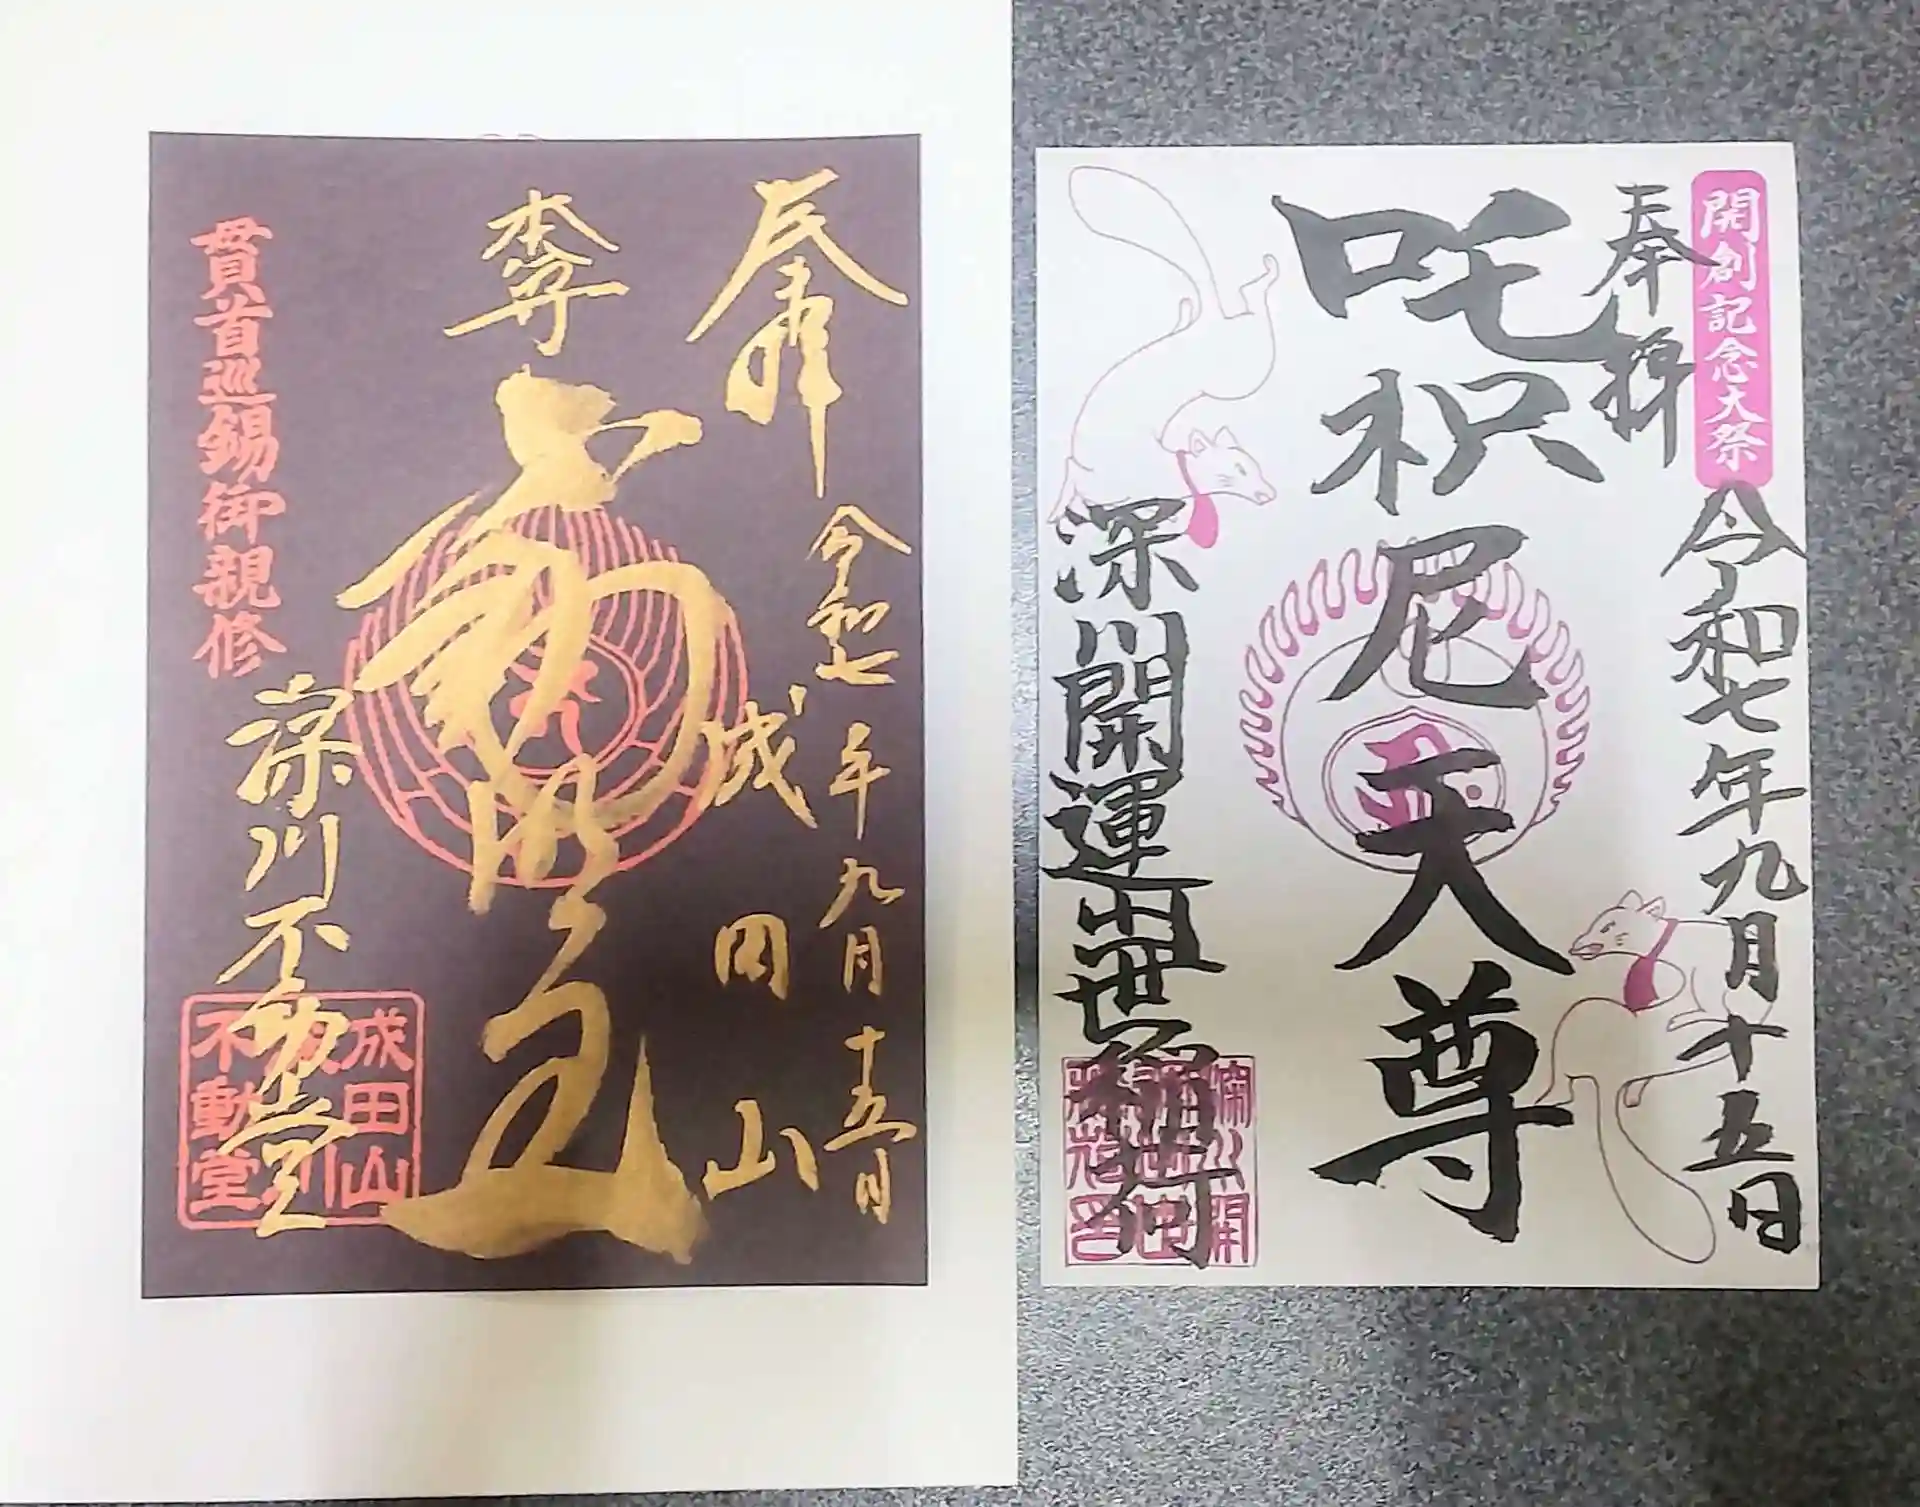 奉拝
令和七年九月十五日
成田山
本尊
不動明王
貫首巡錫御親修
深川不動堂
成田山
深川
不動堂
開創記念大祭
奉拝
令和七年九月十五日
吒枳尼天尊
深川開運出世稲荷